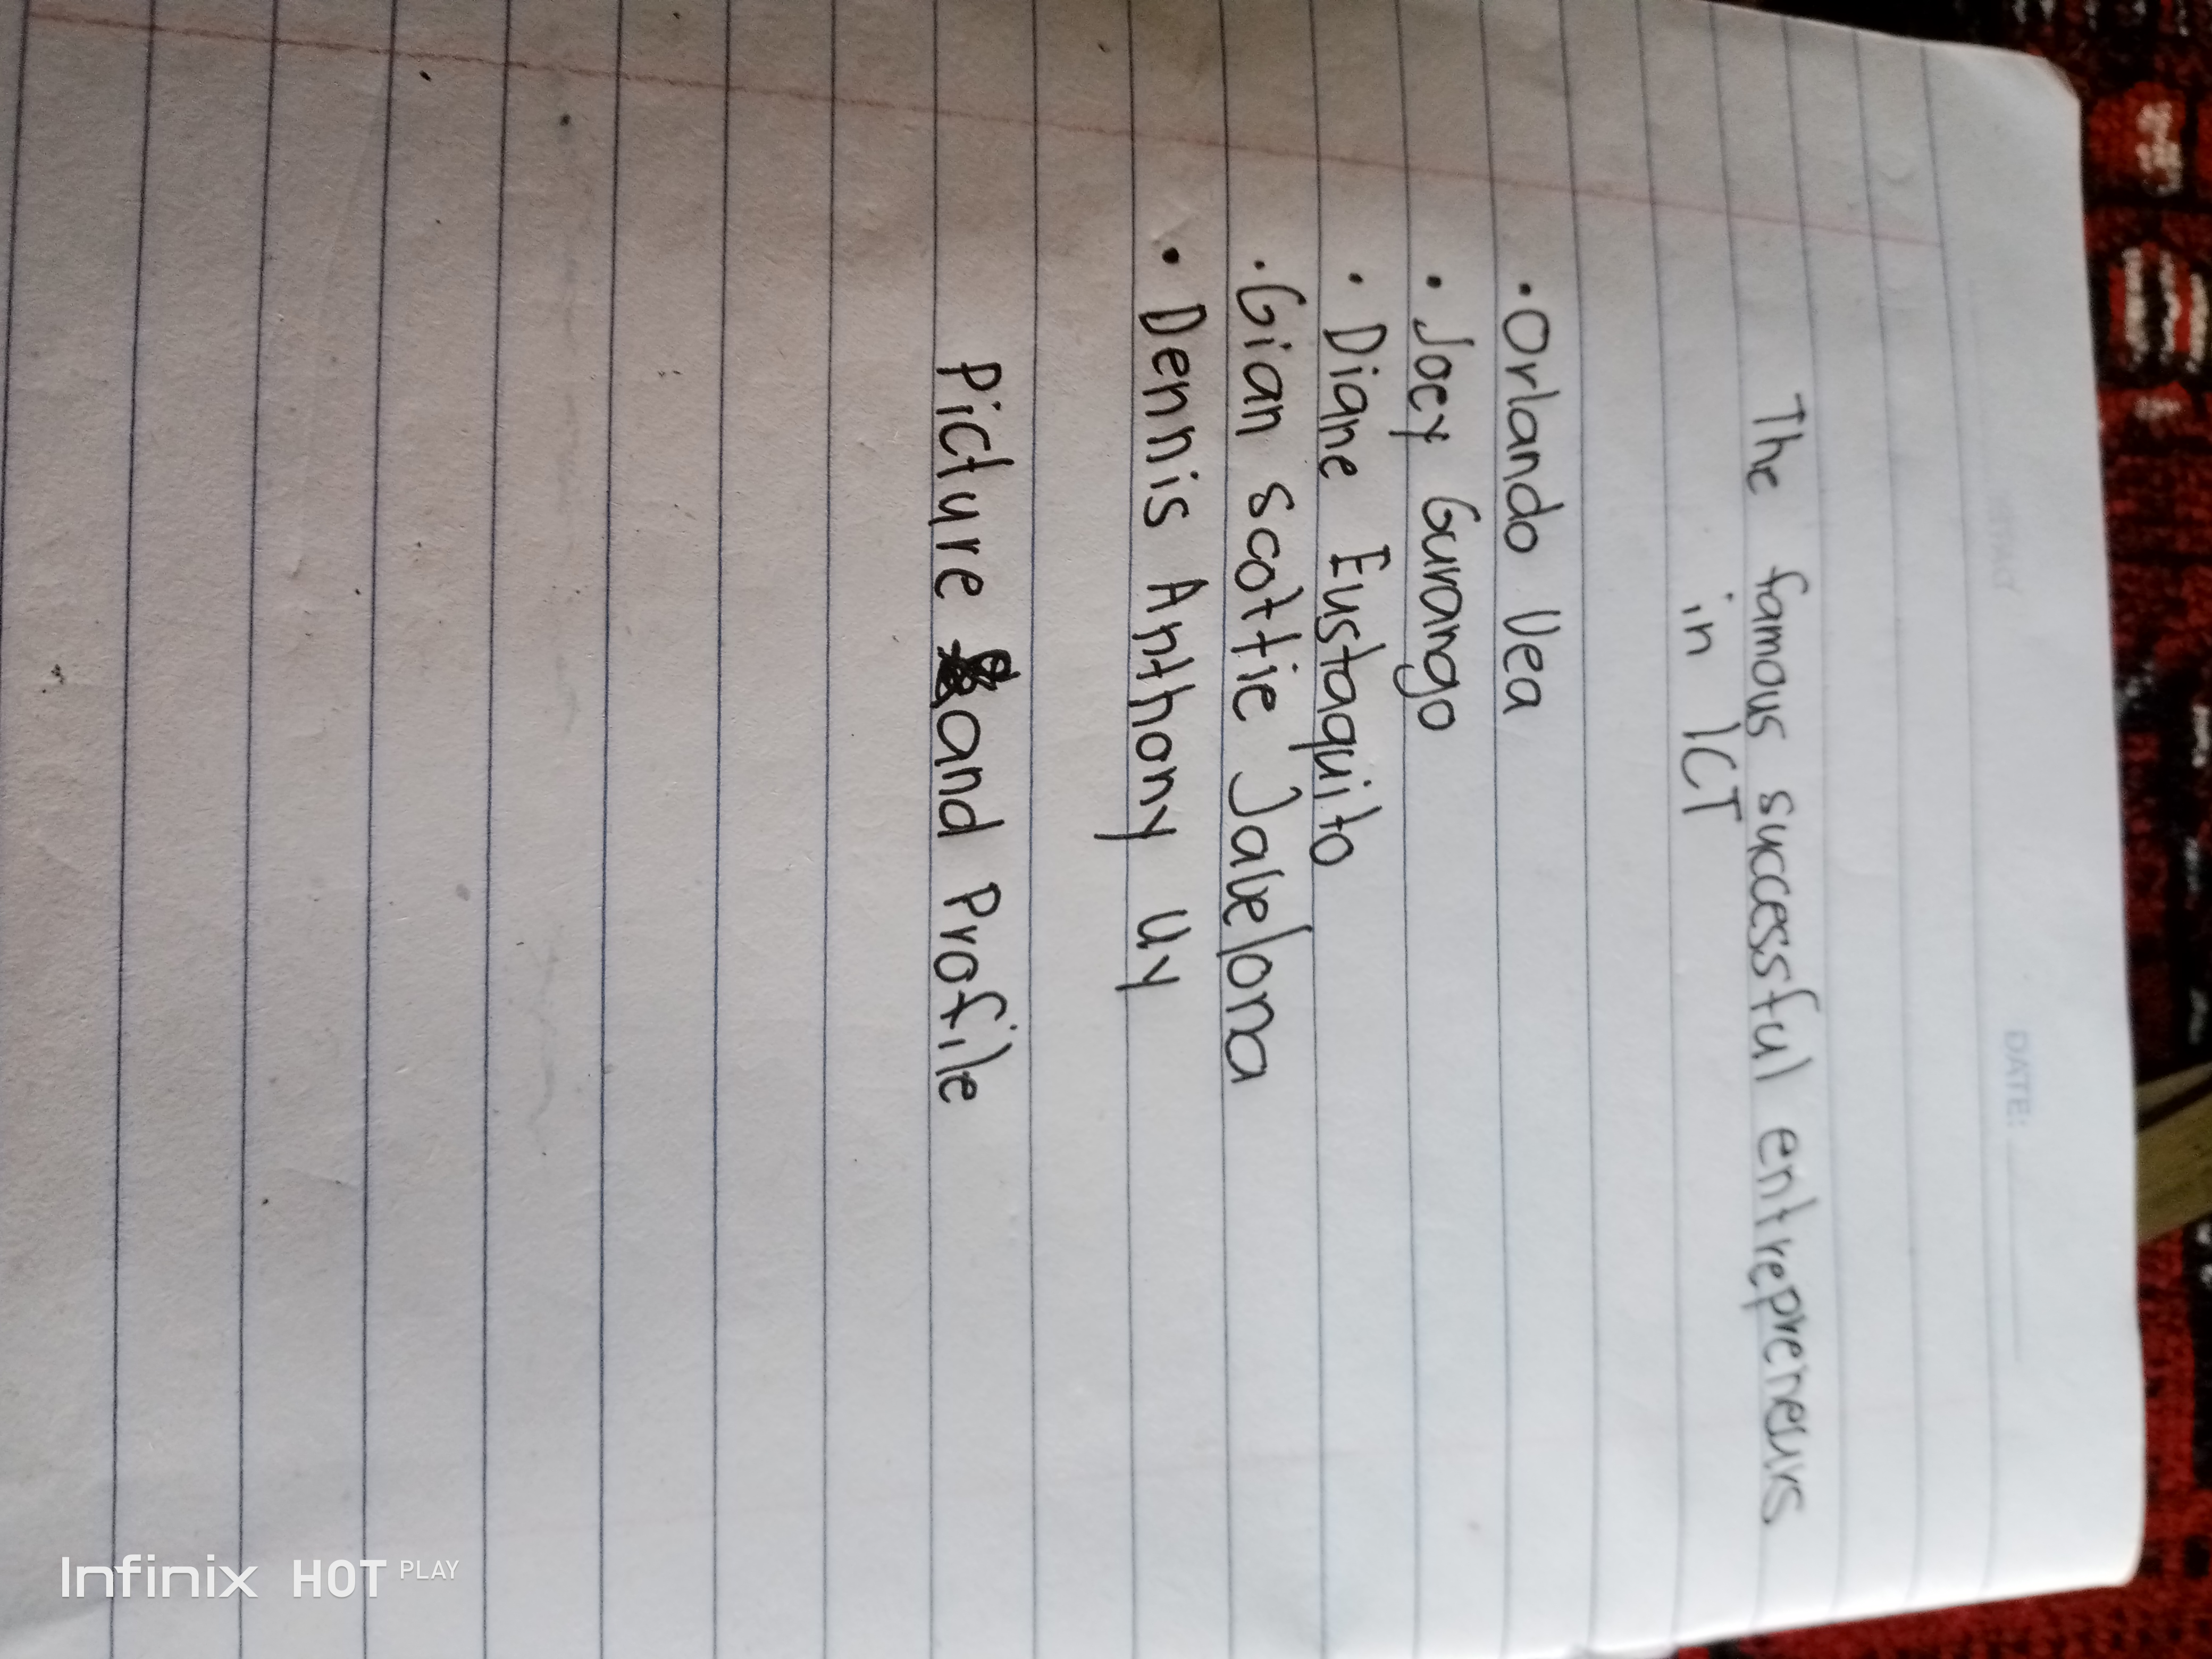 DATE:
The famous successful entrepreneurs
in ICT
• Orlando Vea
• Joey Gurango
• Diane Eustaquito
• Gian scottie Jabelona
• Dennis Anthony Uy
Picture and Profile
Infinix HOT PLAY